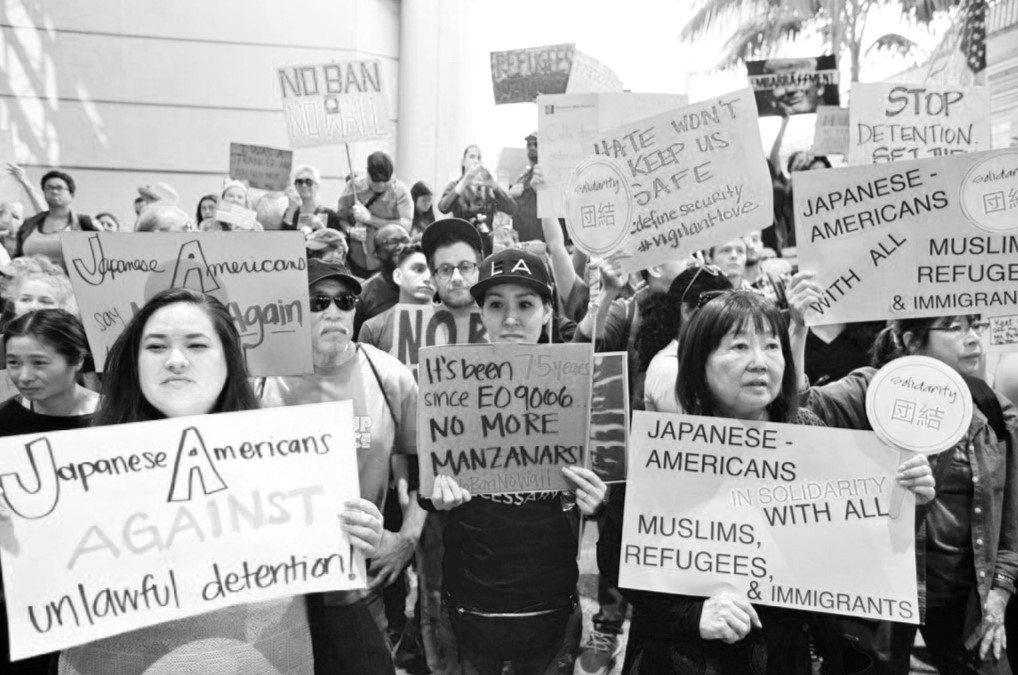 NO BAN
NO WALL
REFUGEES
HATE WON'T
KEEP US
SAFE
#definesecurity
#vigilantlove
solidarity
団結
STOP
DETENTION.
JAPANESE -
AMERICANS
WITH ALL
MUSLIMS
REFUGE
& IMMIGRAN
solidarity
団結
Japanese Americans
say
Again
NO B
LA
It's been 75 years
since EO9066...
NO MORE
MANZANARS!
#NoBanNoWall
Japanese Americans
AGAINST
unlawful detention!
JAPANESE -
AMERICANS
IN SOLIDARITY
WITH ALL
MUSLIMS,
REFUGEES,
& IMMIGRANTS
solidarity
団結